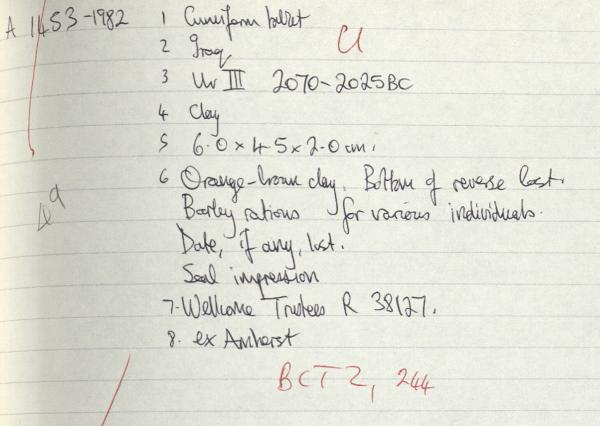 A 1453-1982 1 Cuneiform tablet
2 Iraq
CI
3 Ur III 2070-2025BC
4 Clay
5 6.0 x 4.5 x 2.0 cm.
6 Orange-brown clay. Bottom of reverse lost.
Barley rations for various individuals.
Date, if any, lost.
Seal impression
7. Wellcome Trustees R 38127.
8. ex Amherst
BCT 2, 244